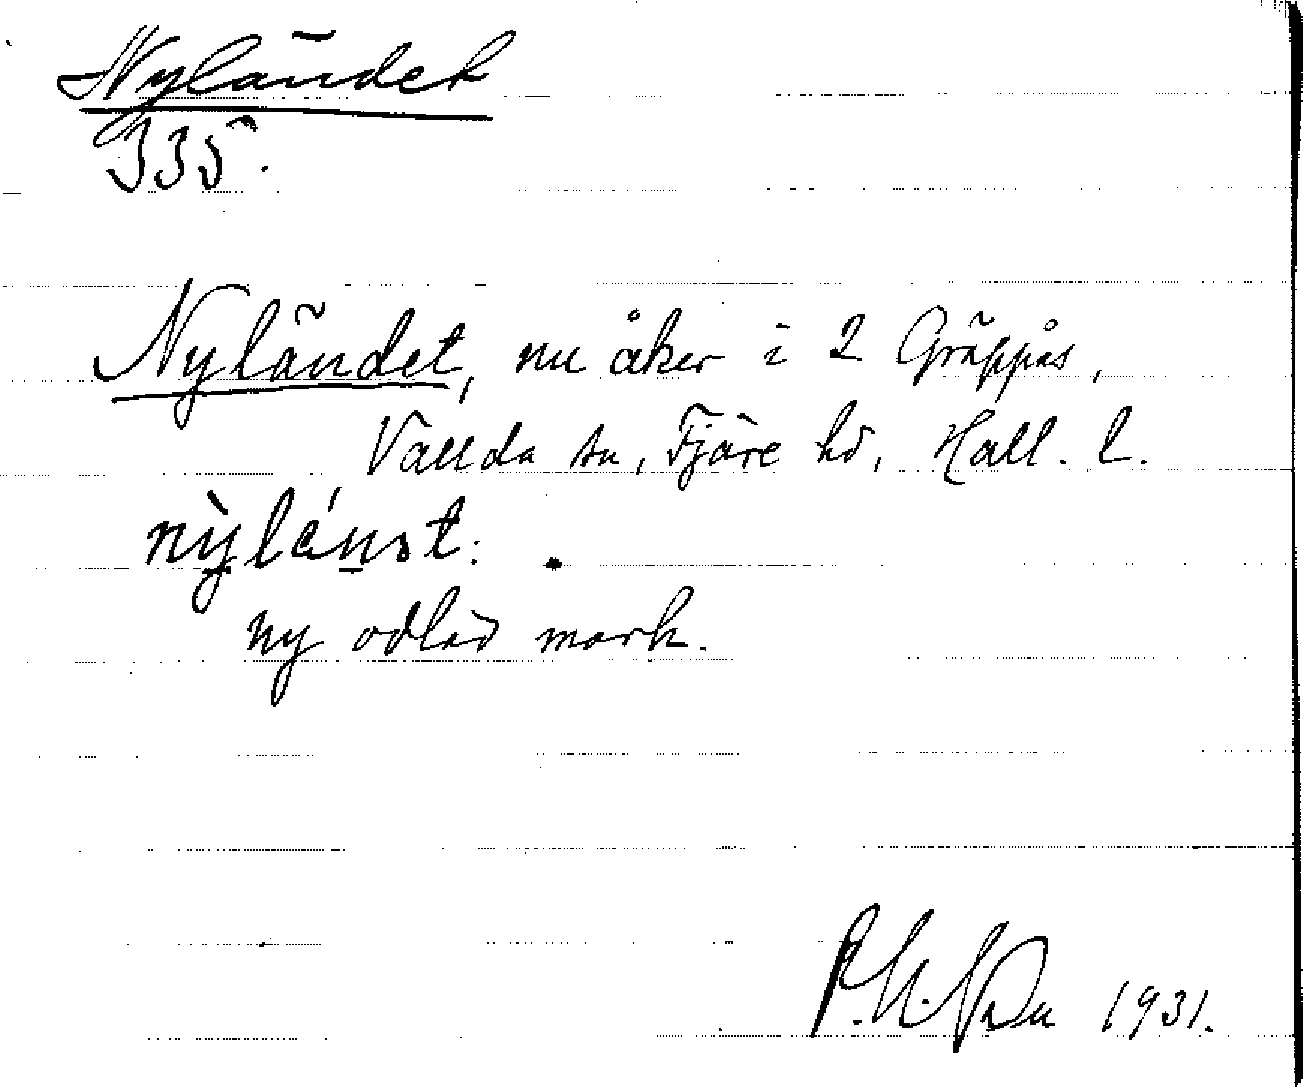 Nyländet
335.
Nyländet, nu åker i 2 Gräppås,
Vallda sn, Fjäre hd, Hall. l.
ny odlad mark.
1931.